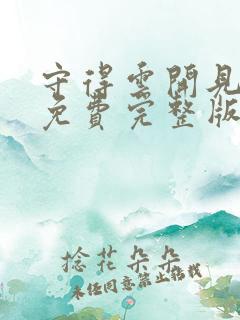 守得雲開見
免費完整版
捻花朵朵
未經同意禁止轉載